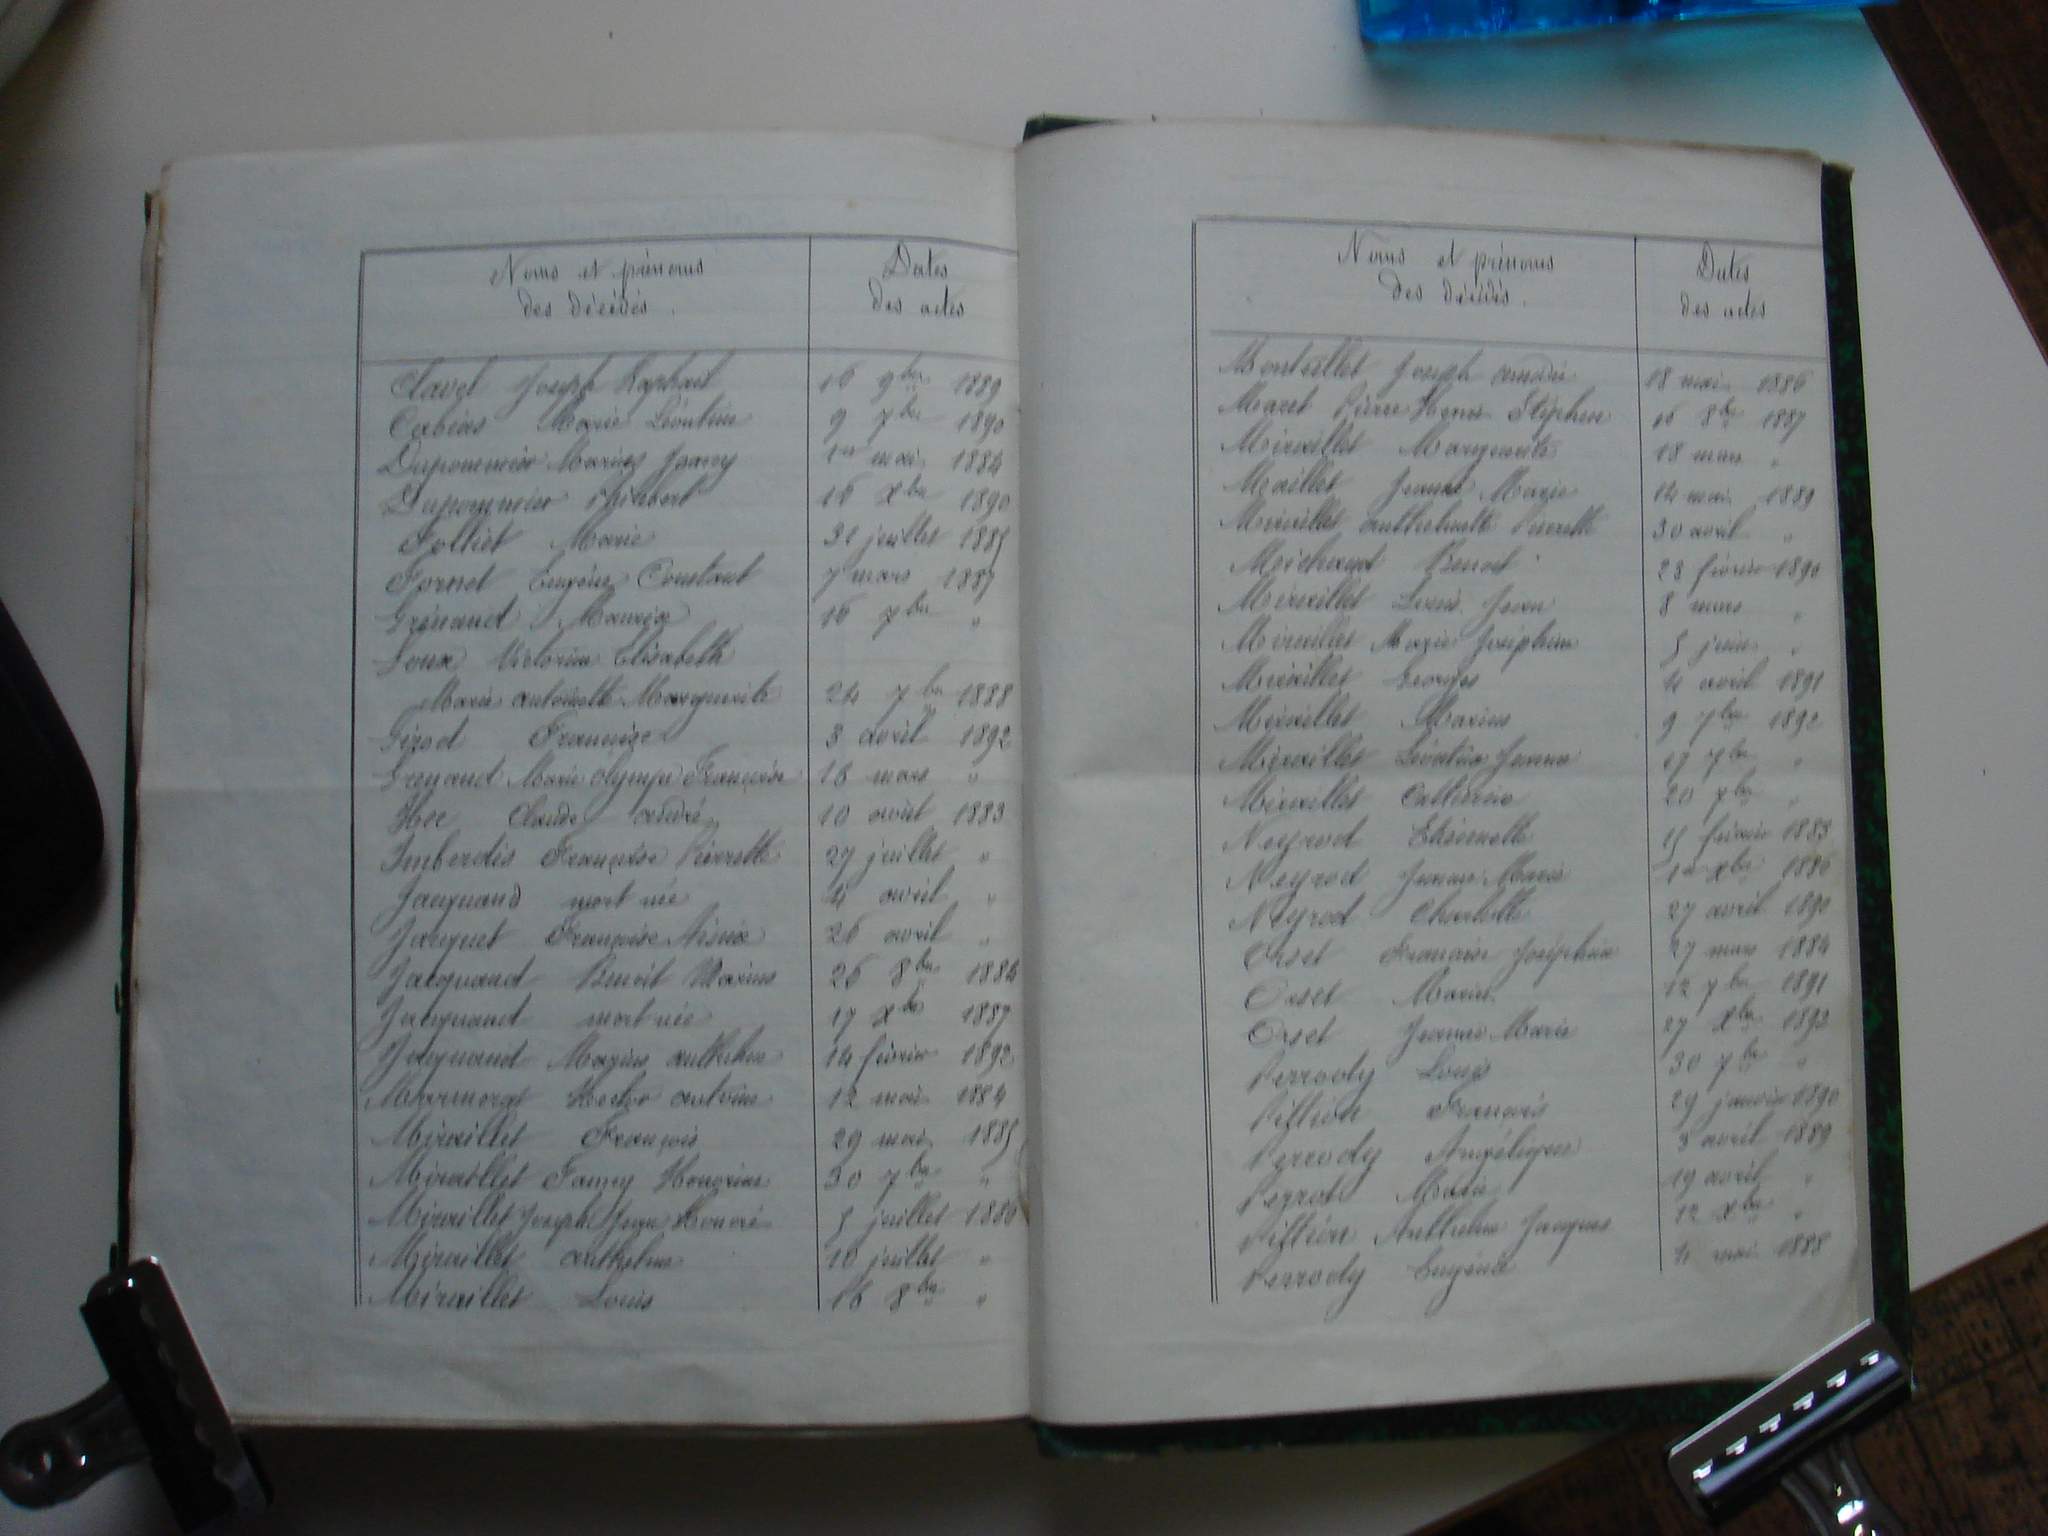 Noms et prénoms Dates
des décédés. des actes
Clavel Joseph Raphaël 16 9bre 1889
Marie Léontine 9 7bre 1890
Duponmier Marius Joanny 1er mai 1884
Duponmier Philibert 16 Xbre 1890
Folliet Marie 31 juillet 1885
Fornet Eugène Constant 7 mars 1887
Grenaud Maurice 16 7bre "
Victorine Elisabeth
Marie Antoinette Marguerite 24 7bre 1888
Girod Françoise 3 avril 1892
Grenaud Marie Olympe Françoise 16 mars "
Hoc Claude André 10 août 1883
Imberdis Françoise Pierrette 27 juillet "
Jacquand mort née 4 avril "
Jacquet Françoise 26 avril "
Jacquand Benoît Marius 26 8bre 1884
Jacquand mort née 17 Xbre 1887
Jacquand Marius Anthelme 14 février 1892
Hector Antoine 12 mai 1884
Miraillet François 29 mai 1885
Miraillet Fanny Honorine 30 7bre "
Miraillet Joseph Jean Honoré 5 juillet 1886
Miraillet Anthelme 10 juillet "
Miraillet Louis 16 8bre "
Noms et prénoms Dates
des décédés. des actes
Monteillet Joseph Amédée 18 mai 1886
Maret Pierre Henri Stéphen 16 8bre 1887
Miraillet Marguerite 18 mars "
Jeanne Marie 14 mai 1889
Miraillet Anthelmette Pierrette 30 avril "
Michaud Benoît 28 février 1890
Miraillet Louis Jean 8 mars "
Miraillet Marie Joséphine 5 juin "
Miraillet Georges 4 avril 1891
Miraillet Marius 9 7bre 1892
Miraillet Léontine Jeanne 17 7bre "
Miraillet Catherine 20 7bre "
Neyrod Etiennette 15 février 1883
Neyrod Jeanne Marie 1er Xbre 1886
Neyrod Charlotte 27 avril 1890
Orset Françoise Joséphine 27 mars 1884
Orset Marie 12 7bre 1891
Orset Jeanne Marie 27 Xbre 1892
Perrody Louis 30 7bre "
Pittion François 29 janvier 1890
Perrody Angélique 3 avril 1889
Peyrot Marie 19 avril "
Pittion Anthelme Jacques 12 Xbre "
Perrody Eugénie 4 mai 1888